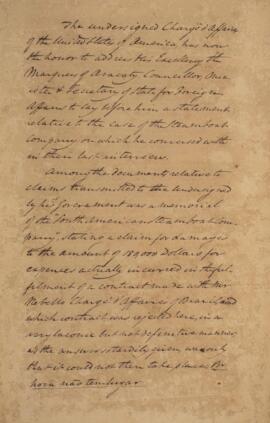 The undersigned Chargé d'Affaires
of the United States of America has now
the honor to address His Excellency the
Marquis of Aracaty Councillor Min
ister & Secretary of State for Foreign
Affairs to lay before him a statement
relative to the case of the Steamboat
Company on which he conversed with
in their last interview.
Among the documents relative to
claims transmitted to the undersigned
by his government was a memorial
of the "South American Steamboat Com
pany" stating a claim for damages
to the amount of Dollars for
expences actually incurred in the ful-
filment of a contract made with Mr
Rebello Chargé d'Affaires of Brazil, and
which contract was rejected here, in a
very laconic but not definitive manner,
as the answer tardily given was only
that it could not then take place